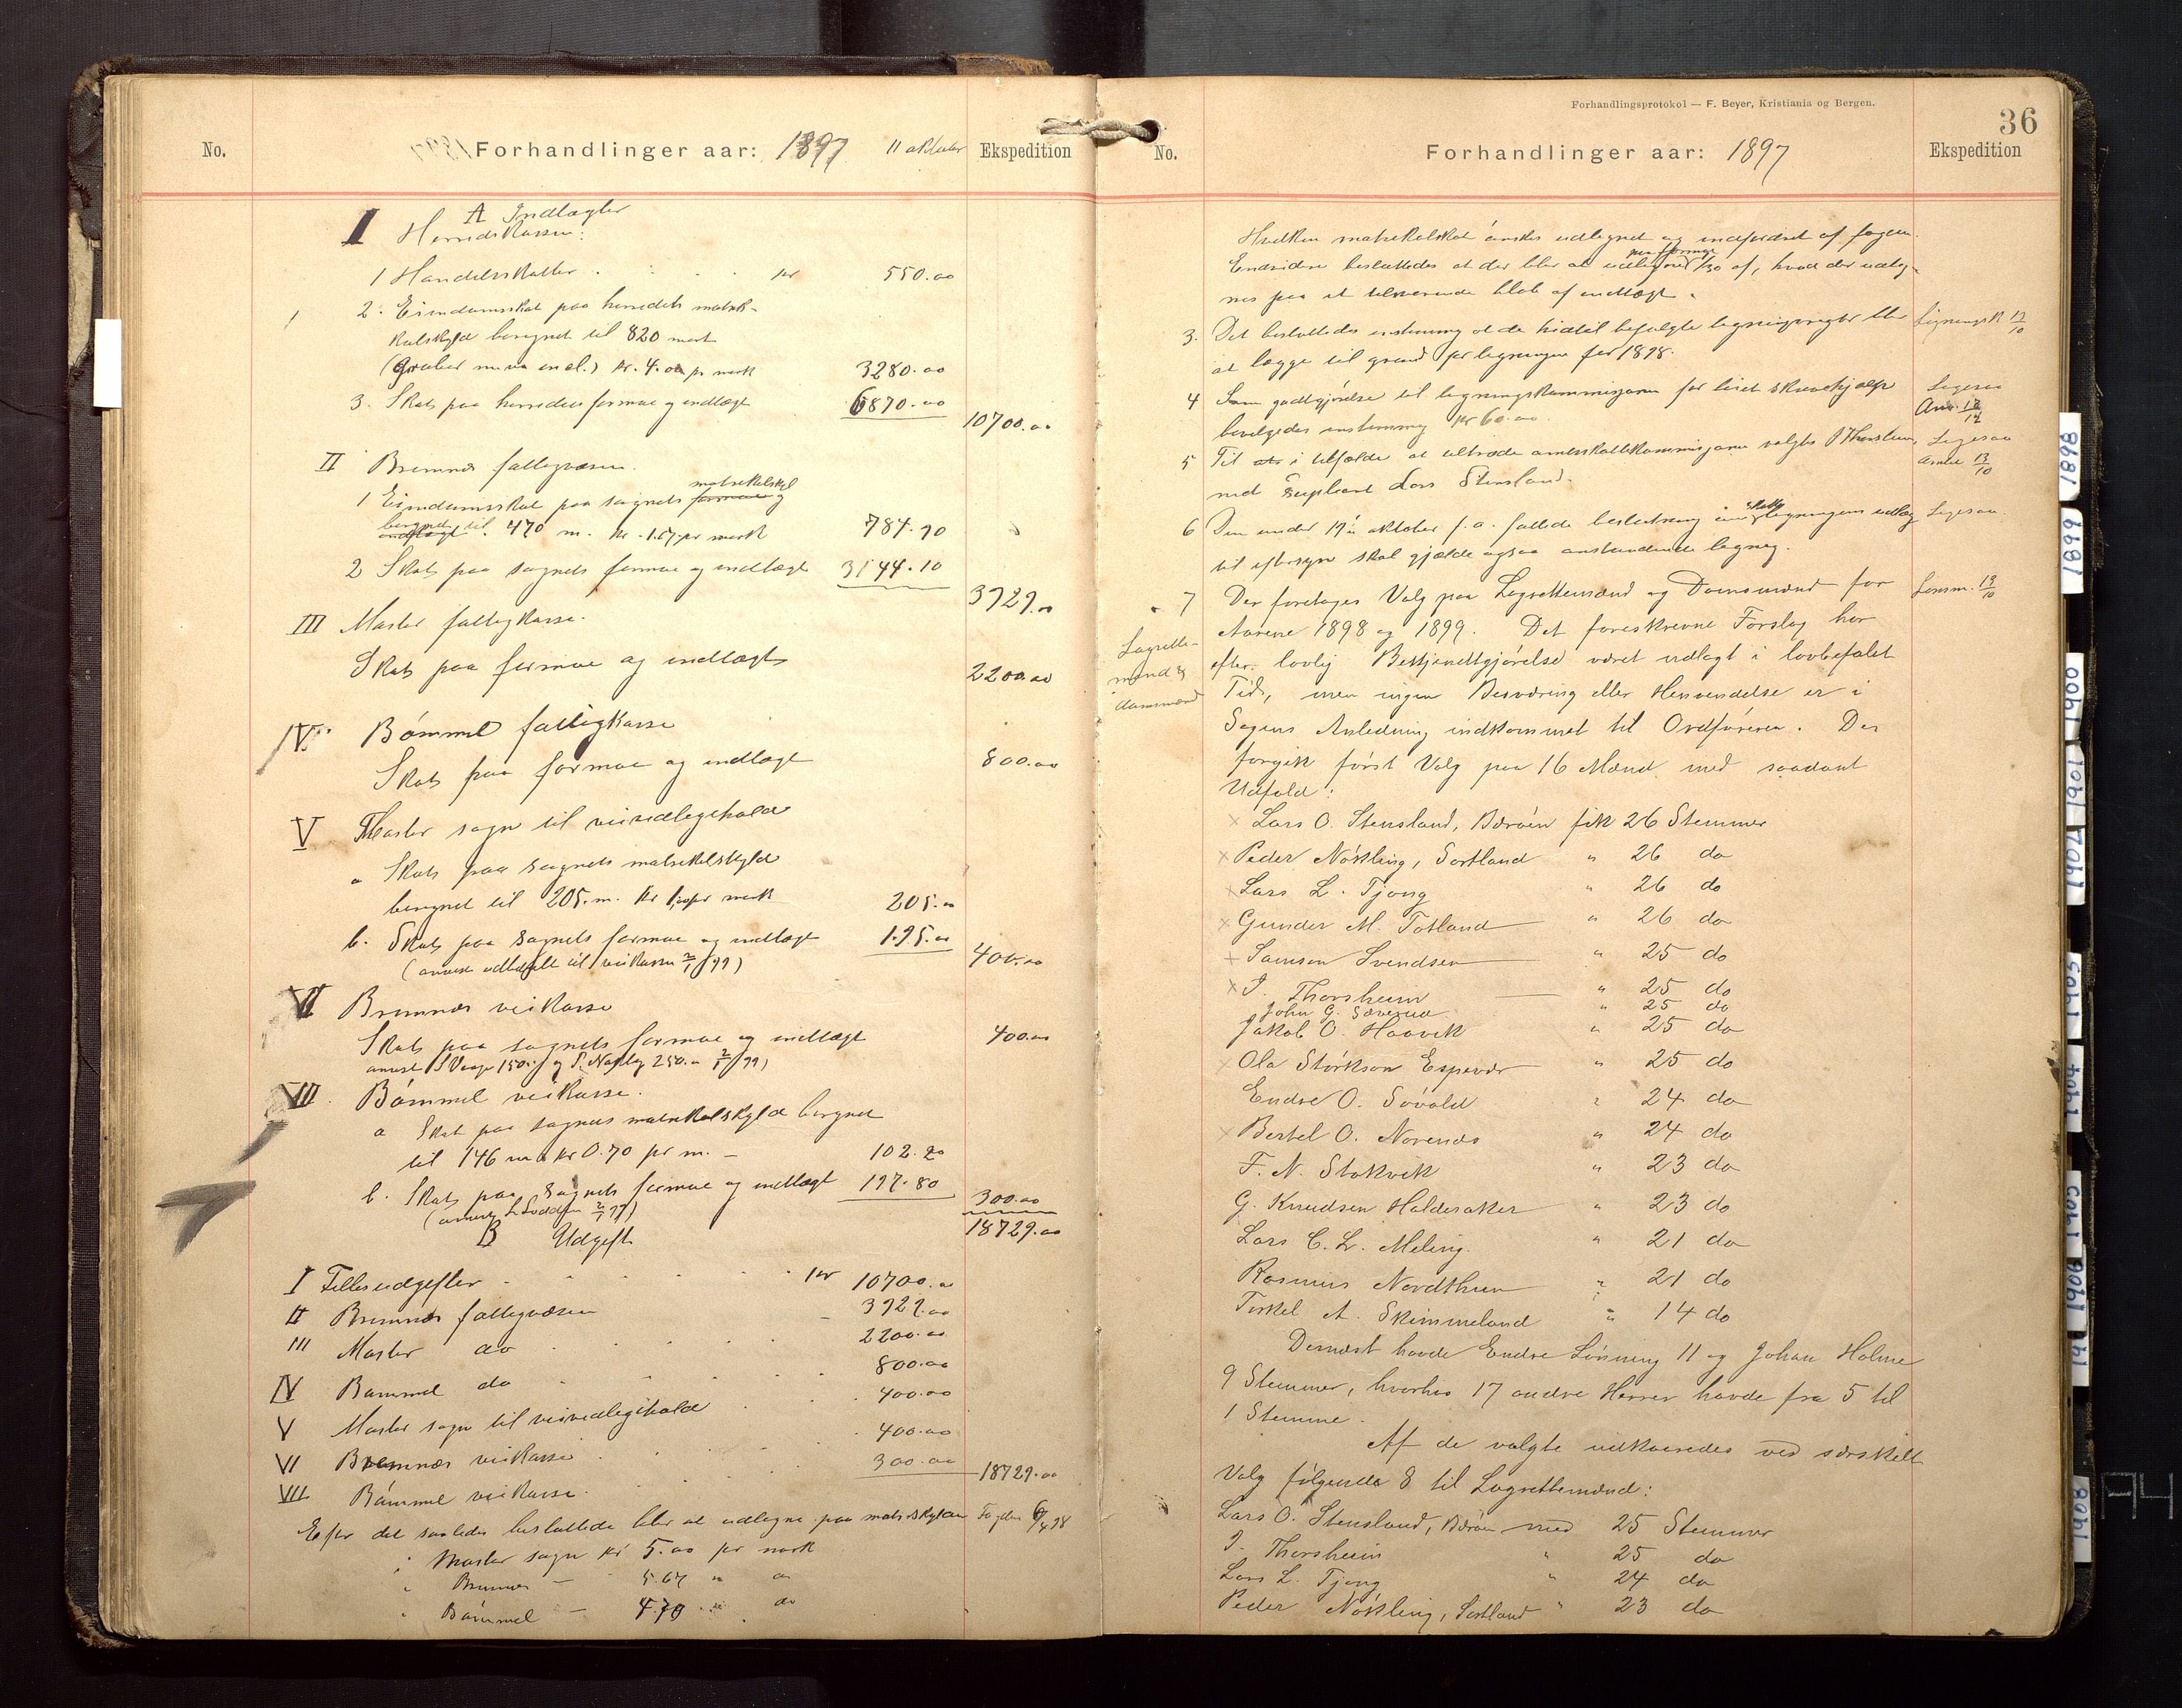 No.
Forhandlinger aar: 1897
11 oktober
Ekspedition
A Indtægter
I Herredskassen:
1 Handelsskatter . . . . kr 550.00
2. Eiendomsskat paa herredets matrik-
kulskyld beregnet til 820 mark
(gruber m.m. incl.) kr. 4.00 pr mark 3280.00
3. Skat paa herredets formue og indtægt 6870.00
10700.00
II Bremnes fattigvæsen.
1 Eiendomsskat paa sognets formue og matrikelskyld
indtægt beregnet til 470 m. kr. 1.67 pr mark 784.90
2 Skat paa sognets formue og indtægt 3144.10
3929.00
III Moster fattigkasse.
Skat paa formue og indtægt 2200.00
IV Bömmel fattigkasse
Skat paa formue og indtægt 800.00
V Moster sogn til veivedlegehold
a Skat paa sognets matrikelskyld
beregnet til 205 m. kr 1,00 pr mark 205.00
b. Skat paa sognets formue og indtægt 195.00
400.00
(anvist udbetalt til veikassen 2/1 99)
VI Bremnes veikasse
Skat paa sognets formue og indtægt 400.00
VII. Bömmel veikasse.
a Skat paa sognets matrikelskyld beregnet
til 146 m a kr 0.70 pr m. – 102.20
b. Skat paa sognets formue og indtægt 197.80
300.00
18729.00
B Udgift
I Fellesudgifter . . . . kr 10700.00
II Bremnes fattigvæsen 3929.00
III Moster do 2200.00
IV Bømmel do 800.00
V Moster sogn til veivedlegehold 400.00
VI Bremnes veikasse 400.00
VII Bömmel veikasse. 300.00
18729.00
Efter det saaledes besluttede blir at udlegne paa matr.skylden Fogden 6/4 98
i Moster sogn kr 5.00 pr mark
" Bremnes – 5.67 " do
" Bömmel – 4.70 " do
Forhandlingsprotokol — F. Beyer, Kristiania og Bergen.
36
No.
Forhandlinger aar: 1897
Ekspedition
Hvilken matrikelskat önskes udlignet og indfordret af fogden.
Endvidere besluttedes at der blir at udligne 1/30 af, hvad der udlig-
nes paa et tilsvarende beløb af indtægt.
3. Det besluttedes enstemmig at de hidtil befulgte ligningsregler blir Ligningsk 13/10
at lægge til grund for ligningen for 1898.
4 Som godtgjörelse til ligningskommisjonen for leiet skrivehjælp
bevilgedes enstemmig kr 60.00
5 Til at i tilfælde at tiltræde amtsskattekommisjonen valgtes I Thorsheim
med supleant Lars Stensland.
Amtet 13/10
6 Den under 19de oktober f.a. fattede beslutning om skatteligningens udlæg
til eftersyn skal gjælde ogsaa anstundende ligning.
7 Der foretoges Valg paa Lagrettemænd og Domsmænd for Lensm. 13/10
Lagrette-
mænd og
domsmænd
Aarene 1898 og 1899. Det foreskrevne Forslag har
efter lovlig Bekjendtgjörelse været udlagt i lovbefalet
Tid, men ingen Besværing eller Henvendelse er i
Sagens Anledning indkommet til Ordföreren. Der
foregik först Valg paa 16 Mænd med saadant
Udfald:
Lars O. Stensland, Bæröen fik 26 Stemmer
Peder Nökling, Sortland " 26 do
Lars L. Tjong " 26 do
Gunder M. Totland " 26 do
Samson Svendsen " 25 do
I. Thorsheim " 25 do
John G. Sæverud " 25 do
Jakob O. Haavik " 25 do
Ola Störkson Espevær " 25 do
Endre O. Sövold " 24 do
Bertel O. Norenes " 24 do
F. N. Stokvik " 23 do
G. Knudsen Halderaker " 23 do
Lars C. L. Meling. " 21 do
Rasmus Nordthun " 21 do
Torkel A. Skimmeland " 14 do
Dernæst havde Endre Lönning 11 og Johan Holme
9 Stemmer, hvorhos 17 andre Herrer havde fra 5 til
1 Stemme.
Af de valgte udkaaredes ved særskilt
Valg følgende 8 til Lagrettemænd:
Lars O. Stensland, Bæröen med 25 Stemmer
I. Thorsheim " 25 do
Lars L. Tjong " 24 do
Peder Nökling, Sortland " 23 do
1898
1899
1900
1901
1902
1903
1904
1905
1906
1908